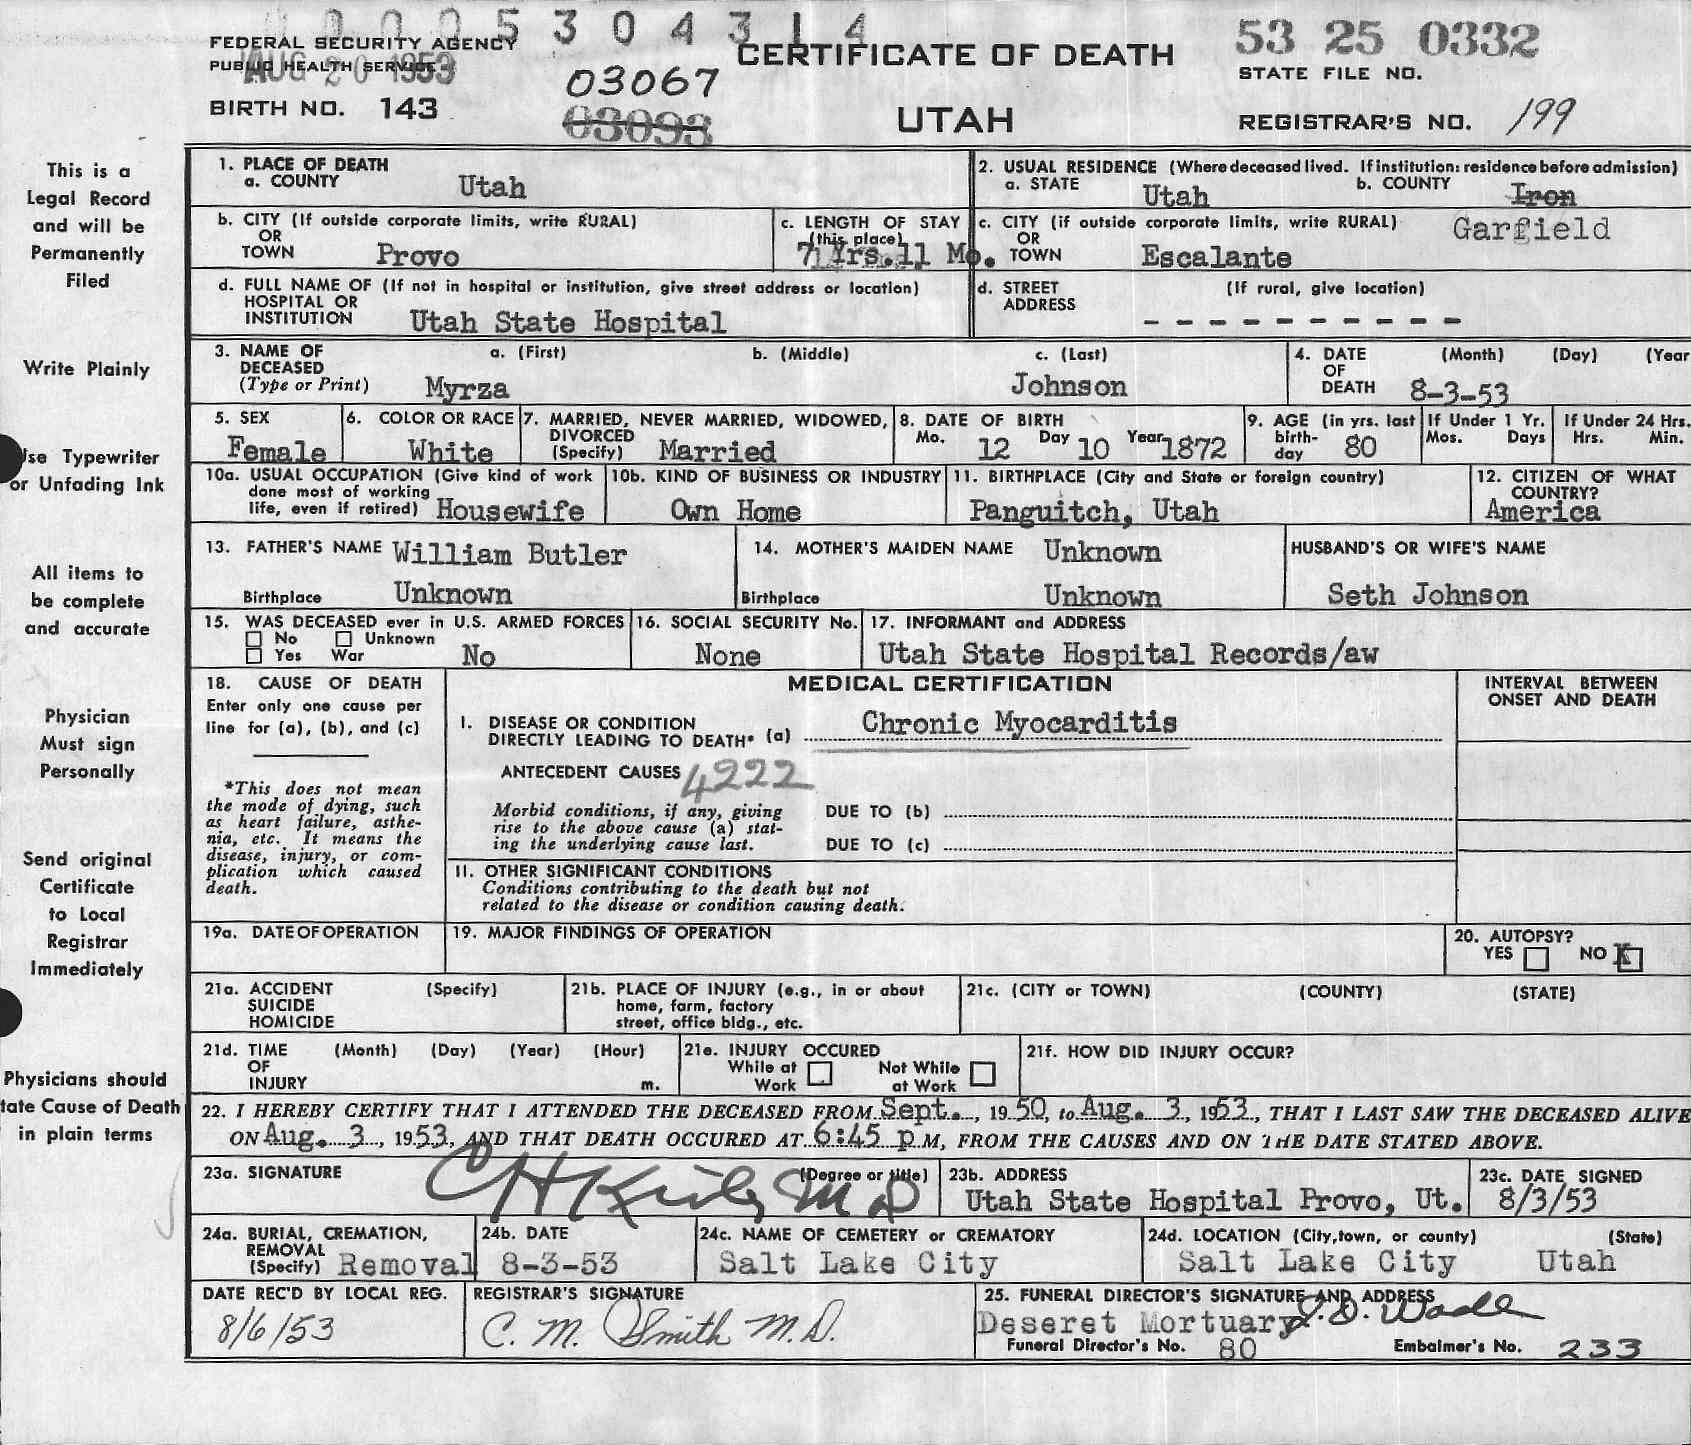 0005304314
FEDERAL SECURITY AGENCY
PUBLIC HEALTH SERVICE
AUG 20 1953
BIRTH NO. 143
03067
03093
CERTIFICATE OF DEATH
UTAH
53 25 0332
STATE FILE NO.
REGISTRAR'S NO. 199
This is a
Legal Record
and will be
Permanently
Filed
Write Plainly
Use Typewriter
or Unfading Ink
All items to
be complete
and accurate
Physician
Must sign
Personally
Send original
Certificate
to Local
Registrar
Immediately
Physicians should
tate Cause of Death
in plain terms
1. PLACE OF DEATH
a. COUNTY Utah
2. USUAL RESIDENCE (Where deceased lived. If institution: residence before admission)
a. STATE Utah b. COUNTY Iron
Garfield
b. CITY (If outside corporate limits, write RURAL)
OR
TOWN Provo
c. LENGTH OF STAY
(this place)
7 Yrs. 11 Mo.
c. CITY (if outside corporate limits, write RURAL)
OR
TOWN Escalante
d. FULL NAME OF (If not in hospital or institution, give street address or location)
HOSPITAL OR
INSTITUTION Utah State Hospital
d. STREET (If rural, give location)
ADDRESS - - - - - - - - - -
3. NAME OF a. (First) b. (Middle) c. (Last)
DECEASED
(Type or Print) Myrza Johnson
4. DATE (Month) (Day) (Year
OF
DEATH 8-3-53
5. SEX
Female
6. COLOR OR RACE
White
7. MARRIED, NEVER MARRIED, WIDOWED,
DIVORCED
(Specify) Married
8. DATE OF BIRTH
Mo. 12 Day 10 Year 1872
9. AGE (in yrs. last
birth-
day 80
If Under 1 Yr.
Mos. Days
If Under 24 Hrs.
Hrs. Min.
10a. USUAL OCCUPATION (Give kind of work
done most of working
life, even if retired) Housewife
10b. KIND OF BUSINESS OR INDUSTRY
Own Home
11. BIRTHPLACE (City and State or foreign country)
Panguitch, Utah
12. CITIZEN OF WHAT
COUNTRY?
America
13. FATHER'S NAME William Butler
Birthplace Unknown
14. MOTHER'S MAIDEN NAME Unknown
Birthplace Unknown
HUSBAND'S OR WIFE'S NAME
Seth Johnson
15. WAS DECEASED ever in U.S. ARMED FORCES
No Unknown
Yes War No
16. SOCIAL SECURITY No.
None
17. INFORMANT and ADDRESS
Utah State Hospital Records/aw
18. CAUSE OF DEATH
Enter only one cause per
line for (a), (b), and (c)
*This does not mean
the mode of dying, such
as heart failure, asthe-
nia, etc. It means the
disease, injury, or com-
plication which caused
death.
MEDICAL CERTIFICATION
I. DISEASE OR CONDITION
DIRECTLY LEADING TO DEATH* (a) Chronic Myocarditis
ANTECEDENT CAUSES 4222
Morbid conditions, if any, giving
rise to the above cause (a) stat-
ing the underlying cause last.
DUE TO (b)
DUE TO (c)
II. OTHER SIGNIFICANT CONDITIONS
Conditions contributing to the death but not
related to the disease or condition causing death.
INTERVAL BETWEEN
ONSET AND DEATH
19a. DATE OF OPERATION
19. MAJOR FINDINGS OF OPERATION
20. AUTOPSY?
YES NO X
21a. ACCIDENT (Specify)
SUICIDE
HOMICIDE
21b. PLACE OF INJURY (e.g., in or about
home, farm, factory
street, office bldg., etc.
21c. (CITY or TOWN) (COUNTY) (STATE)
21d. TIME (Month) (Day) (Year) (Hour)
OF
INJURY m.
21e. INJURY OCCURED
While at Not While
Work at Work
21f. HOW DID INJURY OCCUR?
22. I HEREBY CERTIFY THAT I ATTENDED THE DECEASED FROM Sept. , 19 50, to Aug. 3, 1953, THAT I LAST SAW THE DECEASED ALIVE
ON Aug. 3, 1953, AND THAT DEATH OCCURED AT 6:45 p.M, FROM THE CAUSES AND ON THE DATE STATED ABOVE.
23a. SIGNATURE (Degree or title)
M D
23b. ADDRESS
Utah State Hospital Provo, Ut.
23c. DATE SIGNED
8/3/53
24a. BURIAL, CREMATION,
REMOVAL
(Specify) Removal
24b. DATE
8-3-53
24c. NAME OF CEMETERY or CREMATORY
Salt Lake City
24d. LOCATION (City, town, or county) (State)
Salt Lake City Utah
DATE REC'D BY LOCAL REG.
8/6/53
REGISTRAR'S SIGNATURE
C. M. Smith M.D.
25. FUNERAL DIRECTOR'S SIGNATURE AND ADDRESS
Deseret Mortuary Wade
Funeral Director's No. 80 Embalmer's No. 233